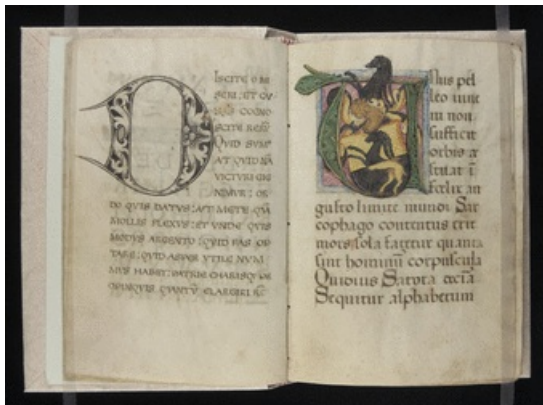 DISCITE O MI
SERI, ET
COGNO
SCITE RERV̄
QVID SVM
QVID NĀ
VICTVRI GIG
NIMVR: OR
DO QVIS DATVS: AVT METE QVĀ
MOLLIS FLEXVS: ET VNDE QVIS
MODVS ARGENTO: QVID FAS OP
TARE: QVID ASPER VTILE NVM
MVS HABET: PATRIE CHARISQ DE
QVANTV̄ ELARGIRI
Vnus pel
leo iuue
ni non
sufficit
orbis æ
stuat ī
fœlix an
gusto limite mundi Sar
cophago contentus erit
mors sola fatetur quanta
sint hominum corpuscula
Sequitur alphabetum